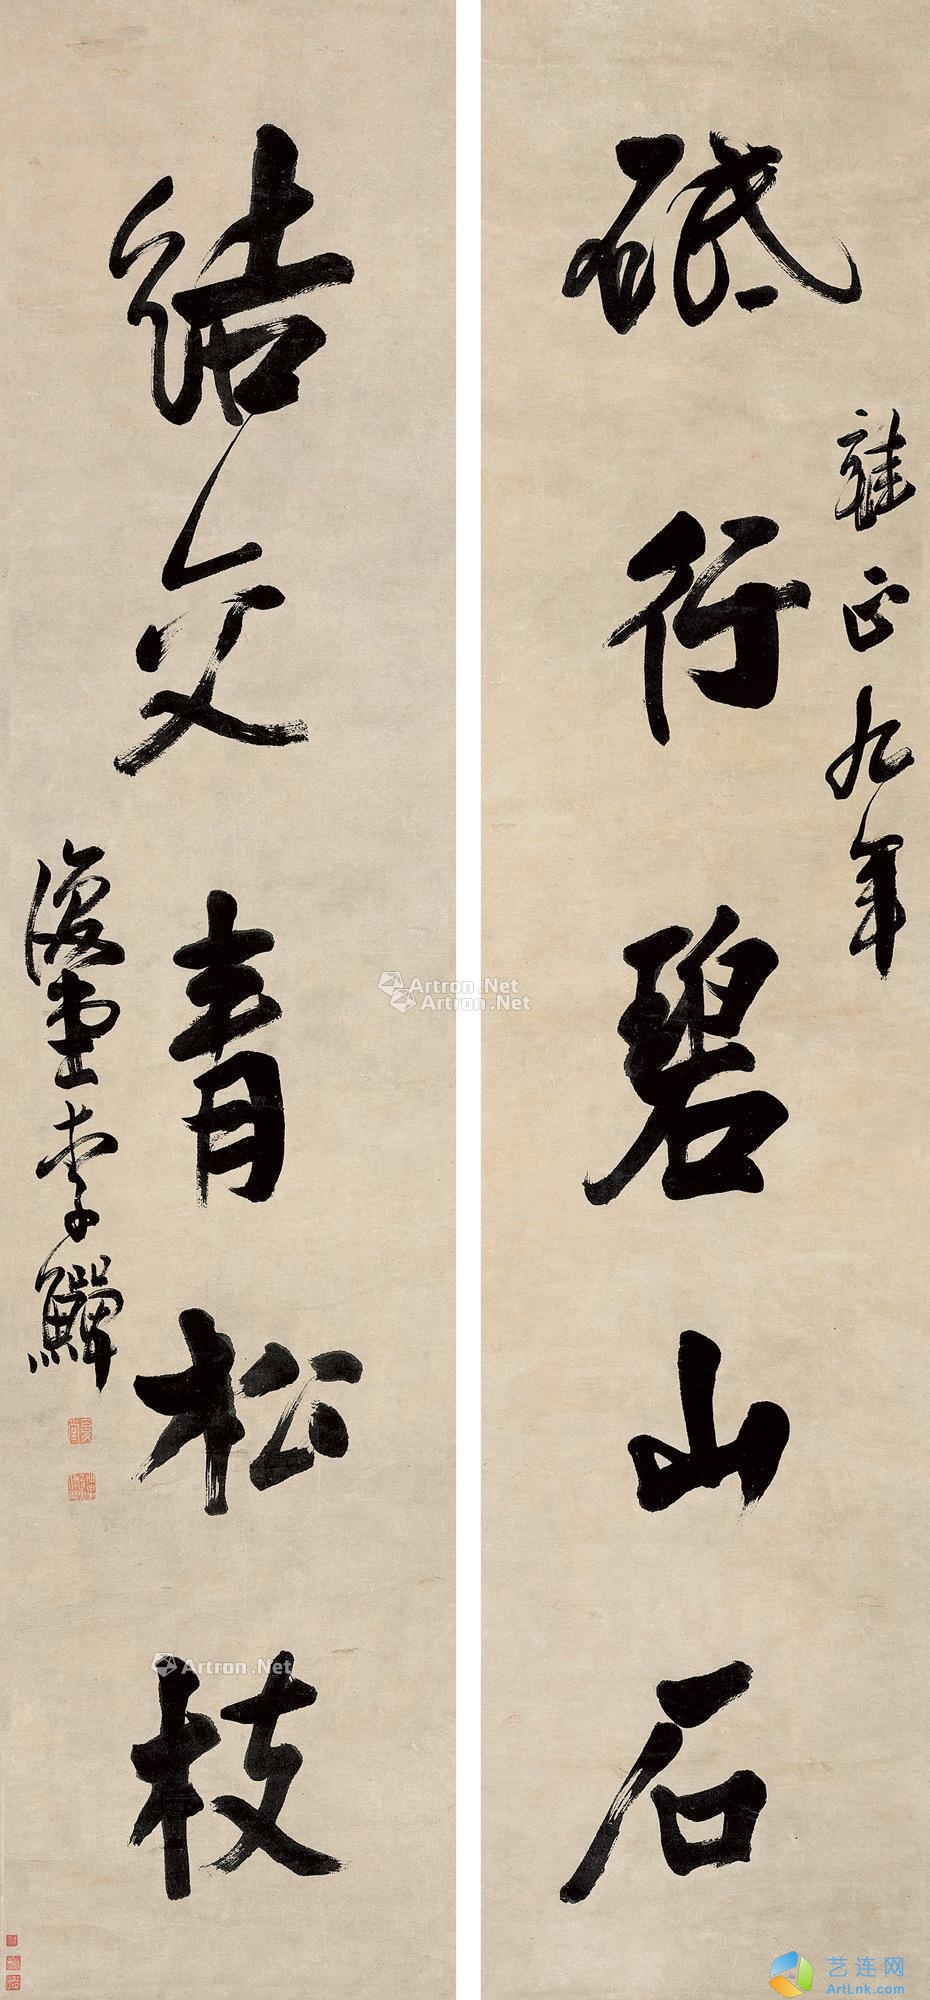 砥行碧山石
雍正九年
結交青松枝
復堂李鱓
Artron.Net
Artron.Net
Artron.Net
艺连网
ArtLnk.com